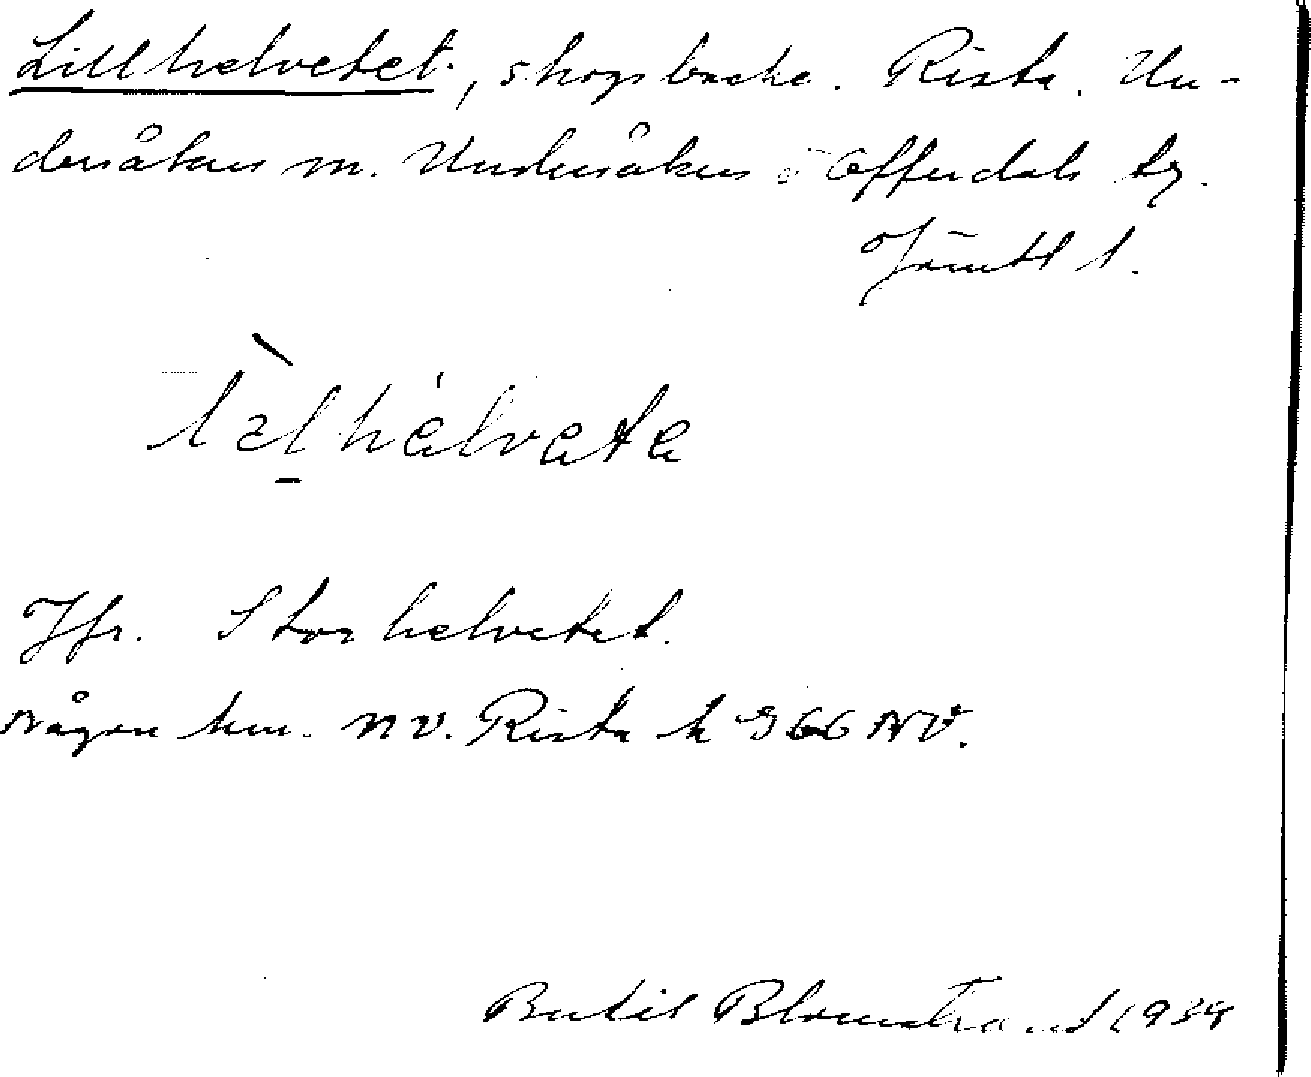 Lillhelvetet, skogsbacke. Rista. Un-
dersåkers sn. Undersåkers o Offerdals tg.
Jämtl l.
Jfr. Storhelvetet.
Någon km. NV. Rista k 966 NV.
Bertil Blomstrand 1934